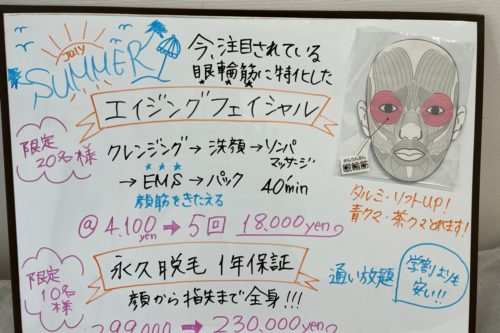 July
SUMMER
今、注目されている
眼輪筋に特化した
エイジングフェイシャル
限定
20名様
クレンジング→洗顔→リンパ
マッサージ
→EMS→パック 40min
顔筋をきたえる
@4,100yen→5回 18,000yen
がんりんきん
眼輪筋
タルミ・リフトUP!
青クマ・茶クマとれます!
限定
10名様
永久脱毛 1年保証
顔から指先まで全身!!!
通い放題
学割よりも
安い!!
299,000→230,000yen